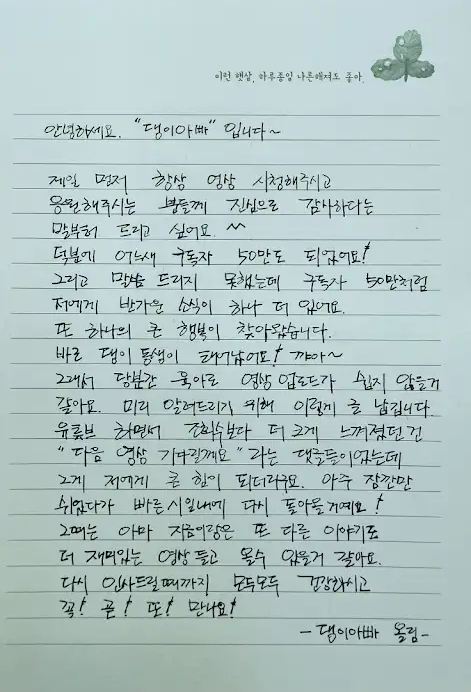 이런 햇살, 하루종일 나른해져도 좋아.
안녕하세요. "댕이아빠" 입니다~
제일 먼저 항상 영상 시청해주시고
응원해주시는 분들께 진심으로 감사하다는
말부터 드리고 싶어요. ^^
덕분에 어느새 구독자 50만도 되었어요!
그리고 말씀 드리지 못했는데 구독자 50만처럼
저에게 반가운 소식이 하나 더 있어요.
또 하나의 큰 행복이 찾아왔습니다.
바로 댕이 동생이 태어났어요! 꺄아~
그래서 당분간 육아로 영상 업로드가 쉽지 않을거
같아요. 미리 알려드리기 위해 이렇게 글 남깁니다.
유튜브 하면서 조회수보다 더 크게 느껴졌던건
"다음 영상 기다릴께요" 라는 댓글들이었는데
그게 저에게 큰 힘이 되더라구요. 아주 잠깐만
쉬었다가 빠른시일내에 다시 돌아올거예요!
그때는 아마 지금이랑은 또 다른 이야기로
더 재미있는 영상 들고 올수 있을거 같아요.
다시 인사드릴때까지 모두모두 건강하시고
꼭! 곧! 또! 만나요!
- 댕이아빠 올림-